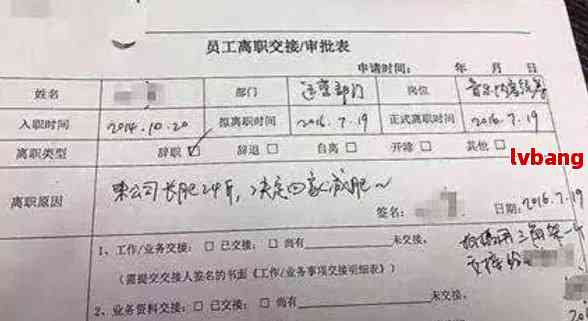 员工离职交接/审批表
申请时间: 年 月 日
姓名 部门 运营部门 岗位
入职时间 2014.10.20 拟离职时间 2016.7.19 正式离职时间 2016.7.19
离职类型 辞职☑ 辞退□ 自离□ 开除□ 其他□
lvbang
离职原因 来公司长肥24斤,决定回家减肥~
签名: 日期: 2016.7.19
1、工作/业务交接: □ 已交接: □ 尚有 未交接。
(需提交交接人签名的书面《工作/业务事项交接明细表》)
2、业务资料交接: □ 已交接: □ 尚有 未交接。